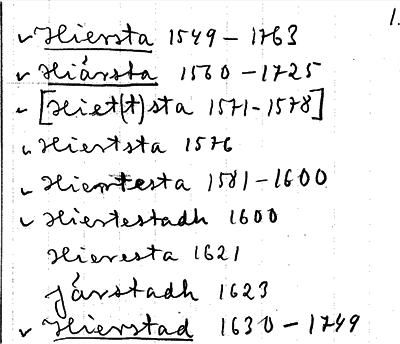 1.
✓ Hiersta 1549 – 1763
✓ Hiärsta 1560 – 1725
✓ [Hiet(t)sta 1571 – 1578]
✓ Hiertsta 1576
✓ Hiertesta 1581 – 1600
✓ Hiertestadh 1600
Hieresta 1621
Järstadh 1623
✓ Hierstad 1630 – 1749